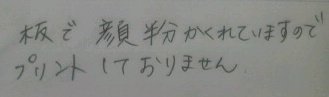 板で 顔半分かくれていますので
プリントしておりません